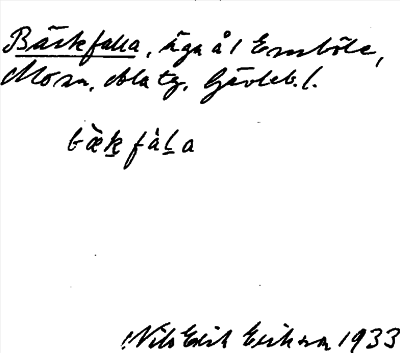 Bäckfalla, äga å 1 Ersböle,
Mo sn, Ala tg. Gävleb. l.
bæ̀k fàl̠a
Nils Erik Erikson 1933